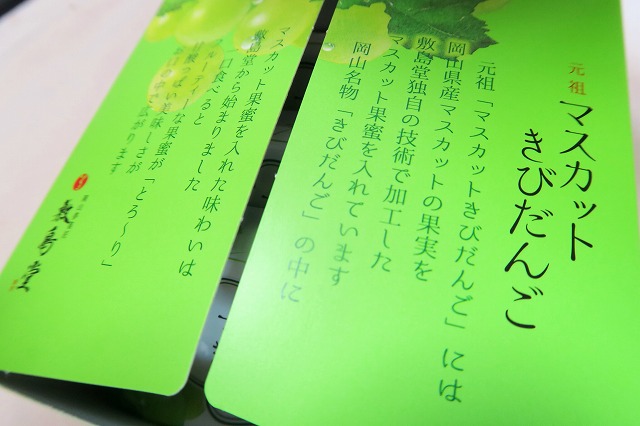 元祖
マスカット
きびだんご
元祖「マスカットきびだんご」には
岡山県産マスカットの果実を
敷島堂独自の技術で加工した
マスカット果蜜を入れています
岡山名物「きびだんご」の中に
マスカット果蜜を入れた味わいは
敷島堂から始まりました
一口食べると
フルーティーな果蜜が「とろ〜り」
甘酸っぱい美味しさが
広がります
敷島堂